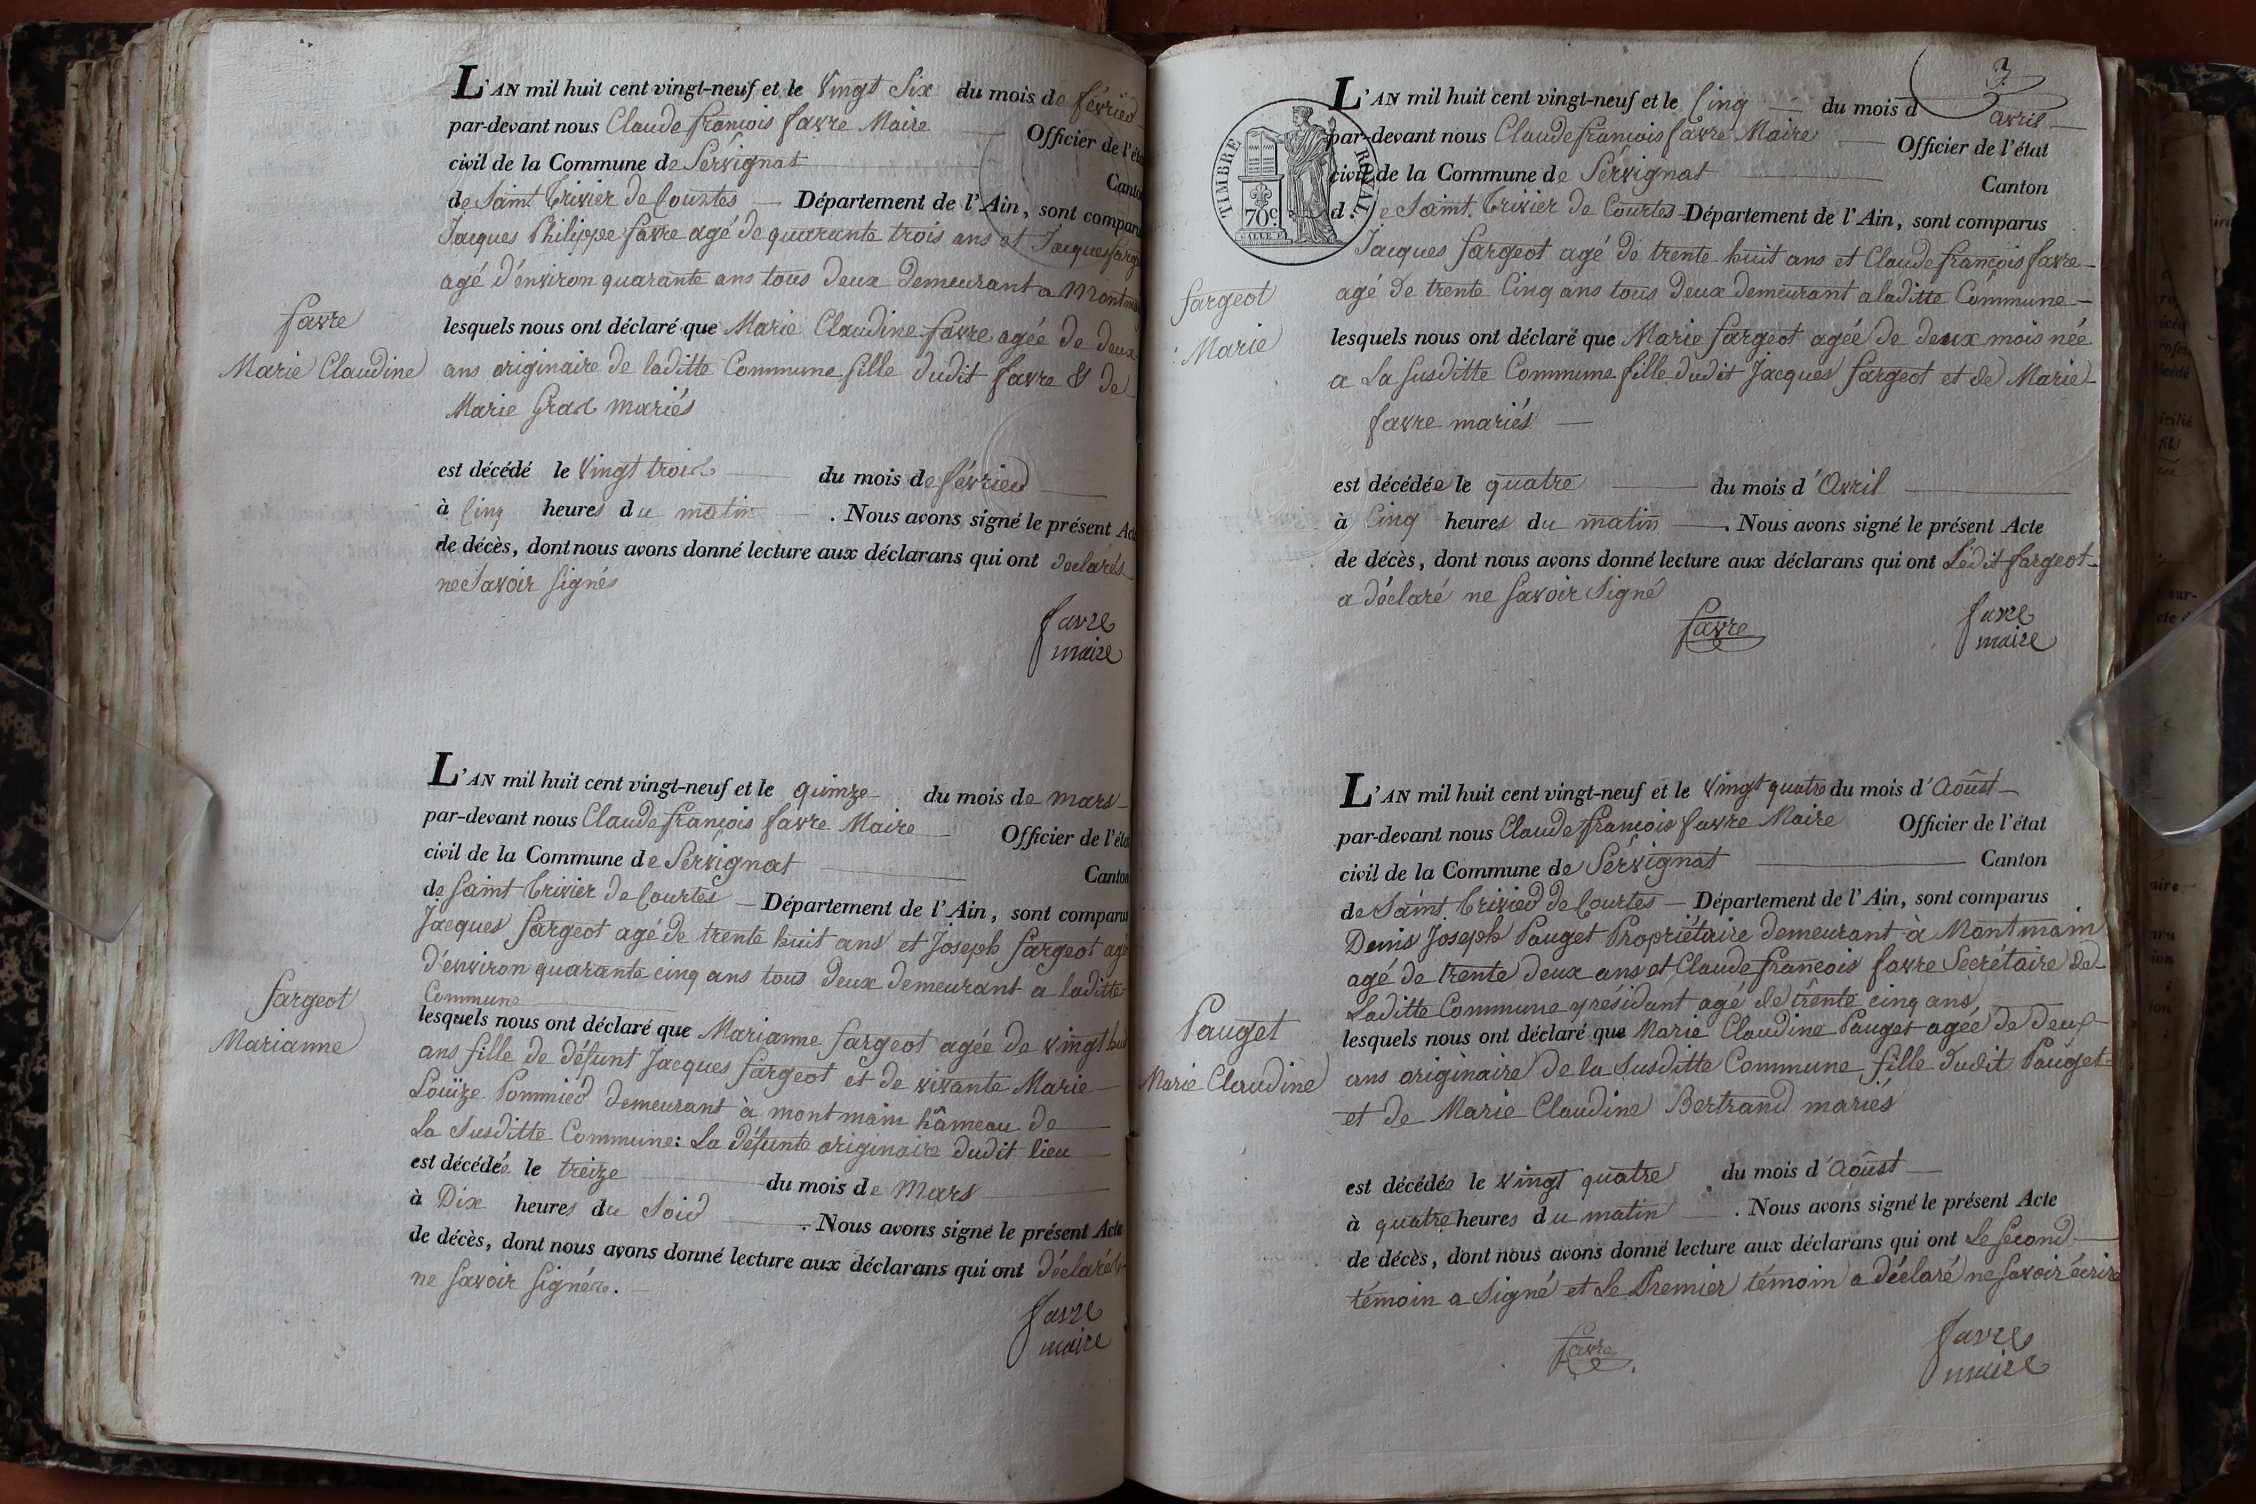 L'AN mil huit cent vingt-neuf et le vingt Six du mois de février
par-devant nous Claude françois favre Maire Officier de l'éta
civil de la Commune de Servignat
Canton
de Saint Trivier de Courtes — Département de l'Ain, sont comparus
Jacques Philippe favre agé de quarante trois ans et Jacques farg
agé d'environ quarante ans tous deux demeurant a Montmai
favre
Marie Claudine
lesquels nous ont déclaré que Marie Claudine favre agée de deux
ans originaire de laditte Commune fille dudit favre & de
Marie Gras mariés
est décédé le vingt trois du mois de février
à Cinq heures du matin . Nous avons signé le présent Acte
de décès, dont nous avons donné lecture aux déclarans qui ont declarés
ne Savoir signés
favre
maire
L'AN mil huit cent vingt-neuf et le quinze du mois de mars
par-devant nous Claude françois favre Maire Officier de l'éta
civil de la Commune de Servignat
Canton
de Saint Trivier de Courtes — Département de l'Ain, sont comparus
Jacques fargeot agé de trente huit ans et Joseph fargeot agé
d'environ quarante cinq ans tous deux demeurant a laditte
Commune
fargeot
Marianne
lesquels nous ont déclaré que Marianne fargeot agée de vingt huit
ans fille de défunt Jacques fargeot et de vivante Marie
Louïze Pommier demeurant à montmain hâmeau de
La Susditte Commune: La défunte originaire dudit lieu
est décédée le treize du mois de Mars
à Dix heures du Soir . Nous avons signé le présent Acte
de décès, dont nous avons donné lecture aux déclarans qui ont déclarés
ne Savoir signér.
favre
maire
3
TIMBRE ROYAL
70c.
L'AN mil huit cent vingt-neuf et le Cinq du mois d avril
par-devant nous Claude françois favre Maire — Officier de l'état
civil de la Commune de Servignat
Canton
d e Saint Trivier de Courtes Département de l'Ain, sont comparus
Jacques fargeot agé de trente huit ans et Claude françois favre
agé de trente Cinq ans tous deux demeurant a laditte Commune
fargeot
Marie
lesquels nous ont déclaré que Marie fargeot agée de deux mois née
a La susditte Commune fille dudit Jacques fargeot et de Marie
favre mariés —
est décédée le quatre du mois d'Avril
à Cinq heures du matin . Nous avons signé le présent Acte
de décès, dont nous avons donné lecture aux déclarans qui ont Ledit fargeot
a déclaré ne Savoir Signé
favre
favre
maire
L'AN mil huit cent vingt-neuf et le vingt quatre du mois d'Aoûst
par-devant nous Claude françois favre Maire Officier de l'état
civil de la Commune de Servignat Canton
de Saint Trivier de Courtes — Département de l'Ain, sont comparus
Denis Joseph Pauget Propriétaire demeurant à Montmain
agé de trente deux ans et Claude francois favre Secrétaire de
Laditte Commune y résidant agé de trente cinq ans
Pauget
Marie Claudine
lesquels nous ont déclaré que Marie Claudine Pauget agée de deux
ans originaire de la Susditte Commune fille dudit Pauget
et de Marie Claudine Bertrand mariés
est décédée le vingt quatre du mois d'Aoûst
à quatre heures du matin . Nous avons signé le présent Acte
de décès, dont nous avons donné lecture aux déclarans qui ont Le Second
témoin a Signé et Le Premier témoin a déclaré ne Savoir écrire
favre
favre
maire